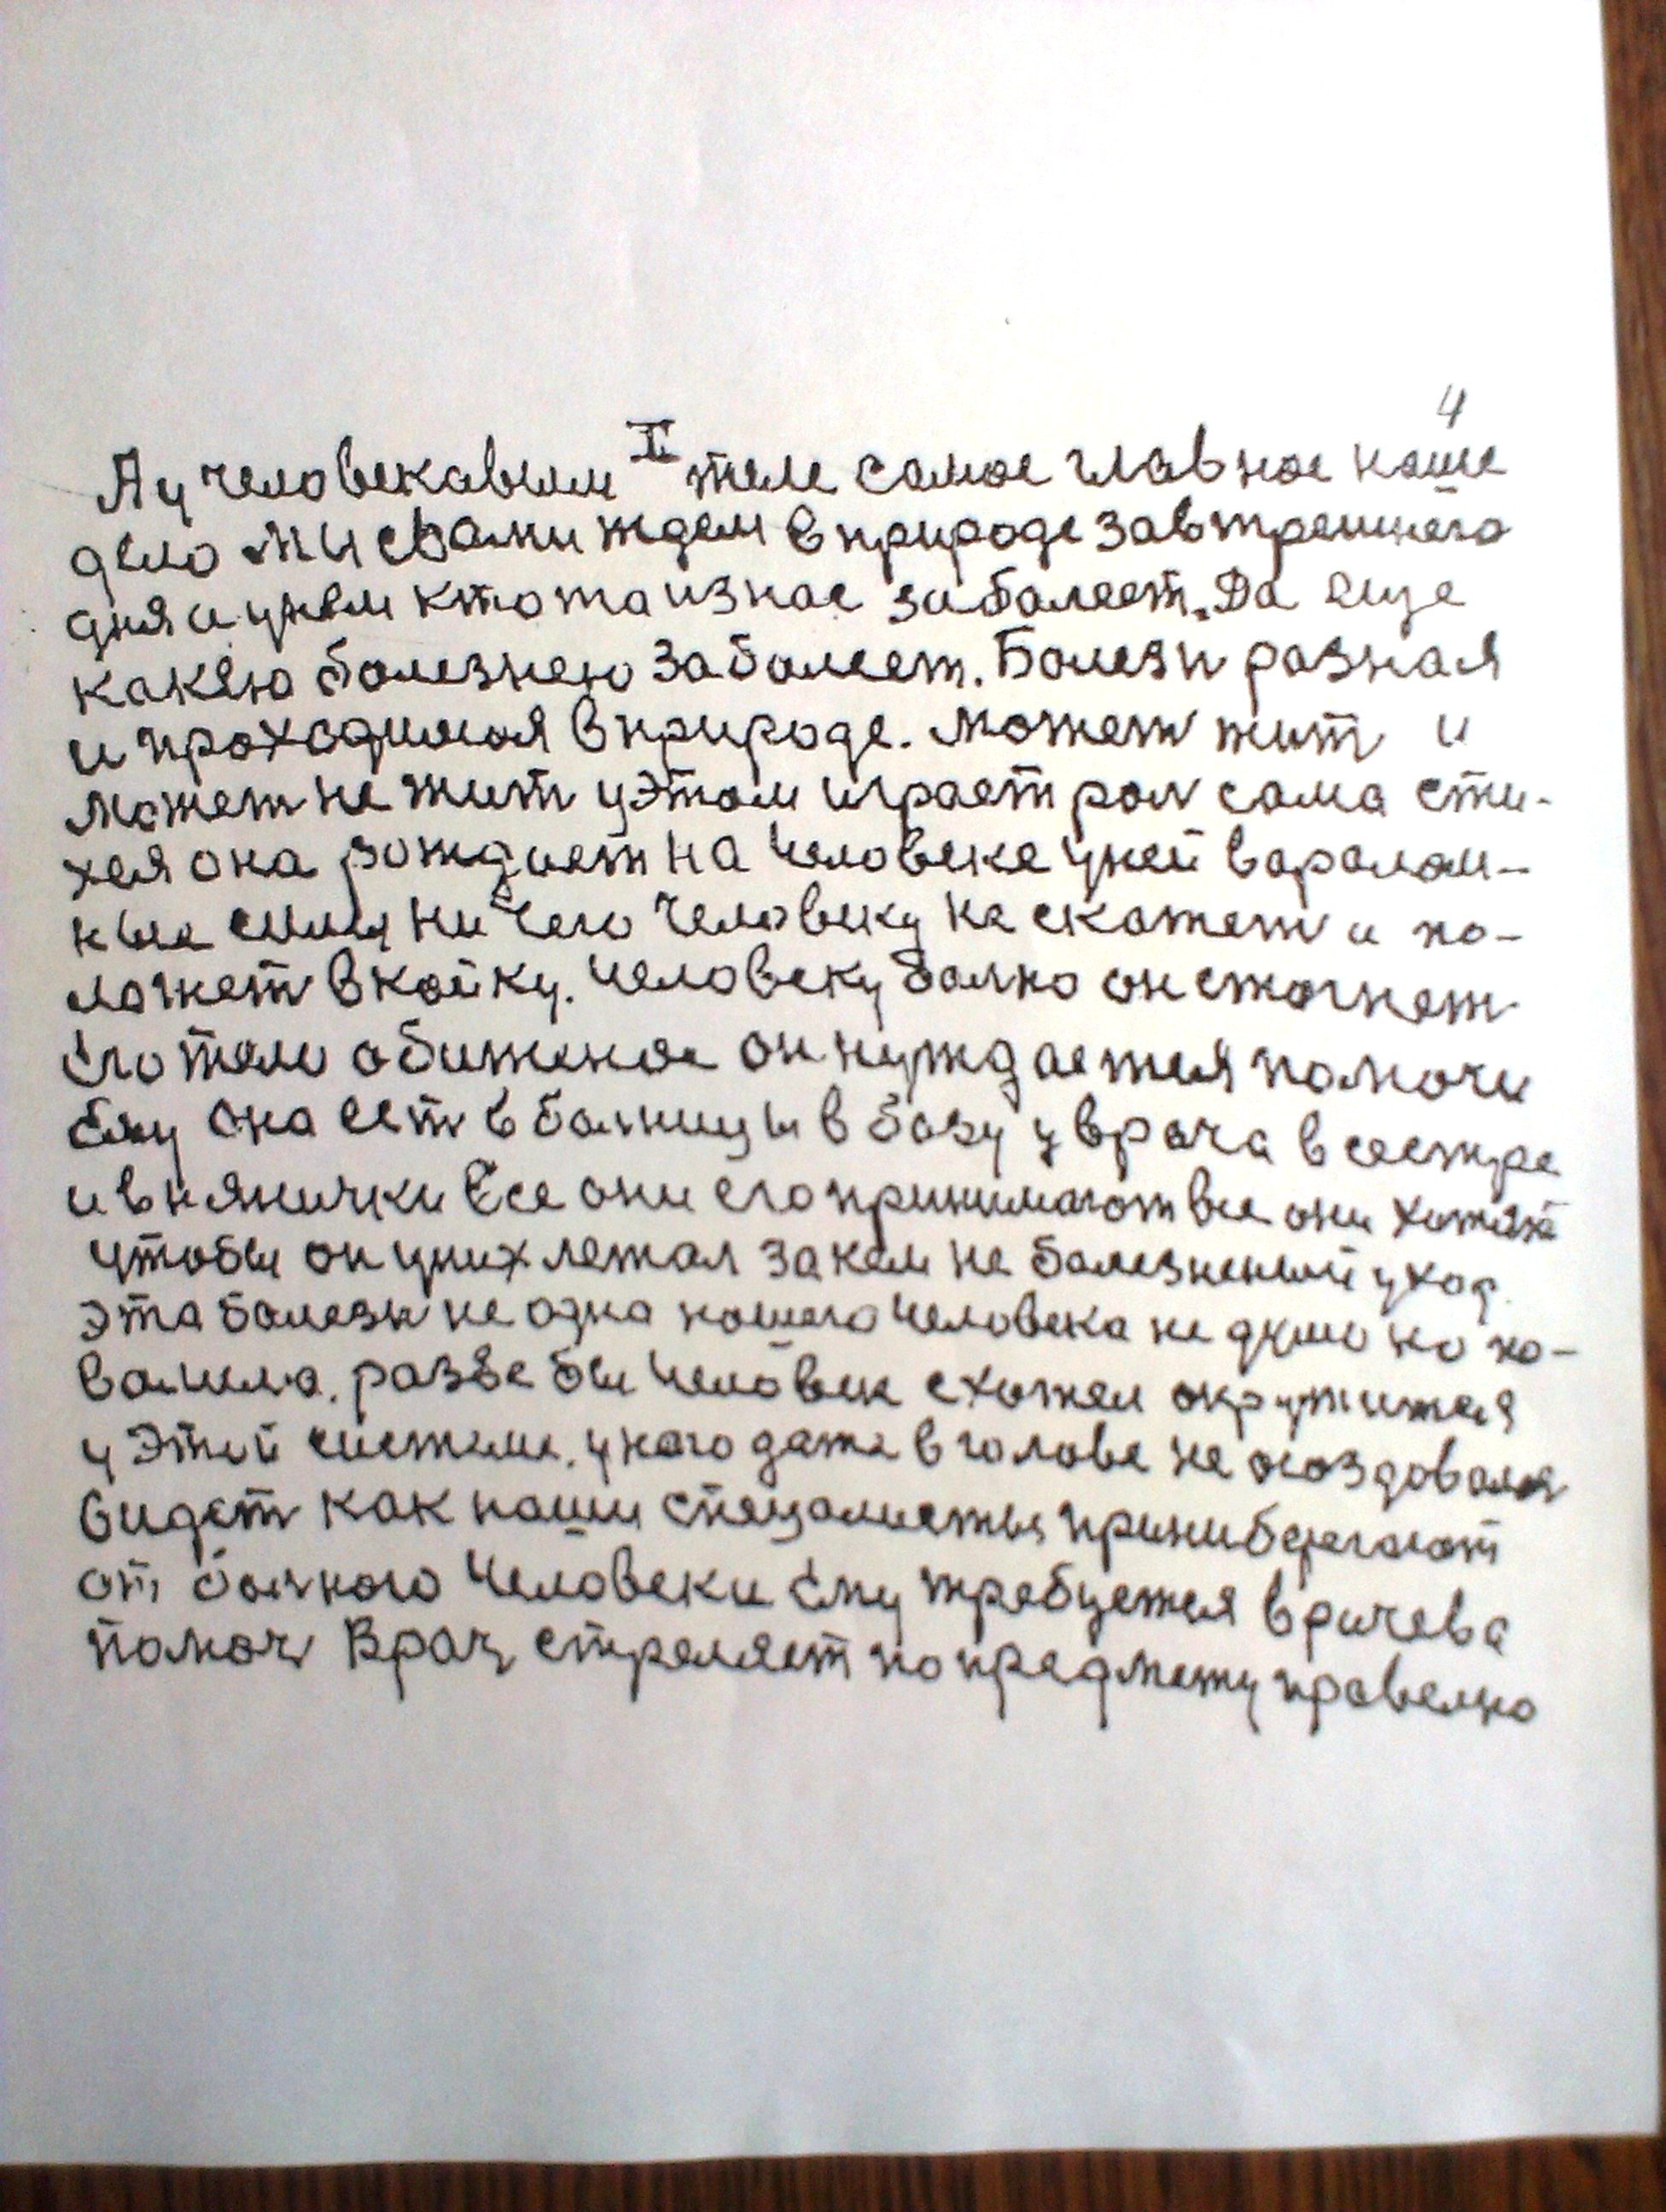 4
II
А у человекавым теле самое главное наше
дело мы свами ждем в природе завтрешнего
дня и унем кто та изнас заболеет. Да еще
какею болезнею заболеет. Болезн разная
и проходимая в природе. Может жит и
может не жит у этом играет рол сама сти-
хея она рождает на человеке уней
ные силы ни чего человеку не скажет и по-
ложет в койку. Человеку болно он стогнет
Его тело обиженое он нуждается помочи
Ему она ест в болницы в базу у врача в сестре
и в нянички Все они его принимают все они хотят
чтобы он у них лежал за кем не болезненый уход.
Эта болезн не одна нашего человека не душила но по-
валила. разве бы человек схотел окружится
у этой системе. у кого даже в голове не
видет как наши специалисты принибрегают
от болного человека Ему требуется врачева
помоч Врач стреляет по предмету правелно